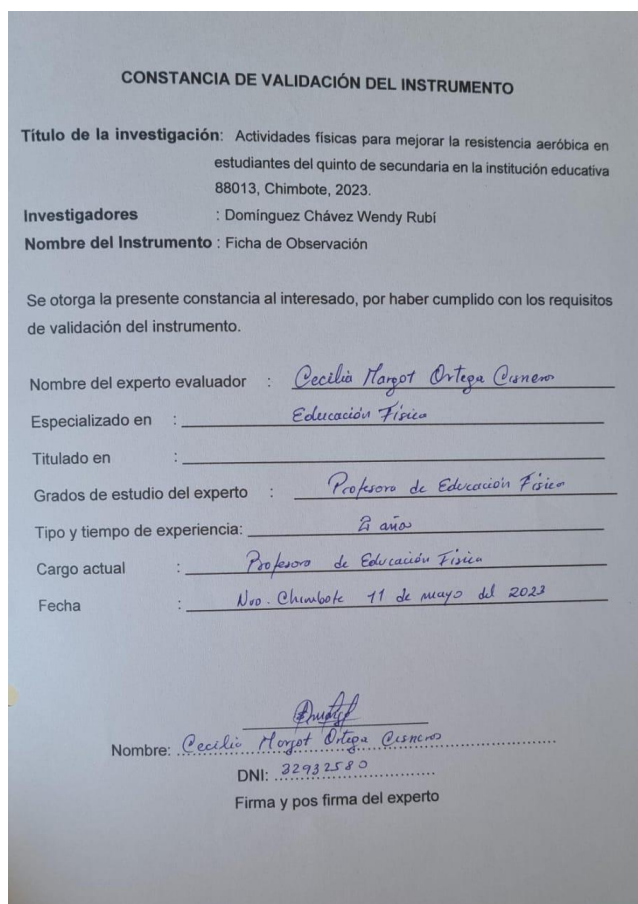 CONSTANCIA DE VALIDACIÓN DEL INSTRUMENTO
Título de la investigación: Actividades físicas para mejorar la resistencia aeróbica en
estudiantes del quinto de secundaria en la institución educativa
88013, Chimbote, 2023.
Investigadores : Domínguez Chávez Wendy Rubí
Nombre del Instrumento : Ficha de Observación
Se otorga la presente constancia al interesado, por haber cumplido con los requisitos
de validación del instrumento.
Nombre del experto evaluador : Cecilia Margot Ortega Cisneros
Especializado en : Educación Física
Titulado en :
Grados de estudio del experto : Profesora de Educación Física
Tipo y tiempo de experiencia: año
Cargo actual : Profesora de Educación Física
Fecha : Nvo. Chimbote 11 de mayo del 2023
Nombre: Cecilia Margot Ortega Cisneros
DNI: 32932580
Firma y pos firma del experto